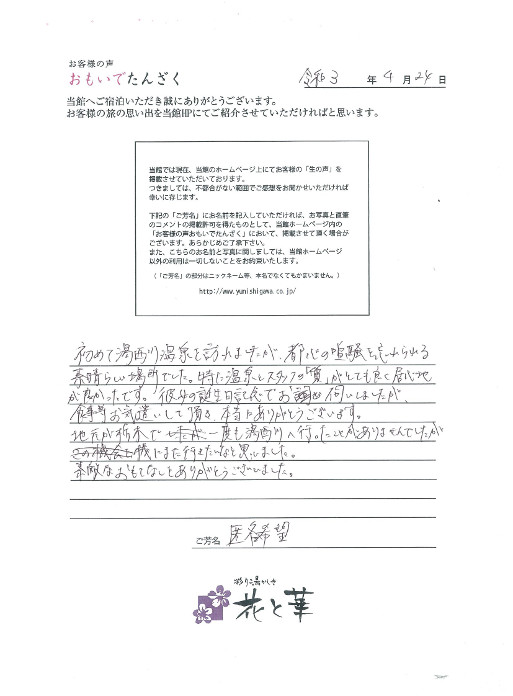 お客様の声
おもいでたんざく
令和3年4月24日
当館へご宿泊いただき誠にありがとうございます。
お客様の旅の思い出を当館HPにてご紹介させていただければと思います。
当館では現在、当館のホームページ上にてお客様の「生の声」を
掲載させていただいております。
つきましては、不都合がない範囲でご感想をお聞かせいただければ
幸いに存じます。
下記の「ご芳名」にお名前を記入していただければ、お写真と直筆
のコメントの掲載許可を得たものとして、当館ホームページ内の
「お客様の声おもいでたんざく」において、掲載させて頂く場合が
ございます。あらかじめご了承下さい。
また、こちらのお名前と写真に関しましては、当館ホームページ
以外の利用は一切しないことをお約束いたします。
（「ご芳名」の部分はニックネーム等、本名でなくてもかまいません。）
http://www.yunishigawa.co.jp/
初めて湯西川温泉を訪れましたが、都心の喧騒を忘れられる
素晴らしい場所でした。特に温泉とスタッフの「質」がとても良く居心地
が良かったです。彼女の誕生日記念でお伺いしましたが、
食事等お気遣いして頂き、本当にありがとうございます。
地元が栃木で一度も湯西川へ行ったことがありませんでしたが
機にまた行きたいなと思いました。
素敵なおもてなしをありがとうございました。
ご芳名 匿名希望
彩り湯かしき
花と華